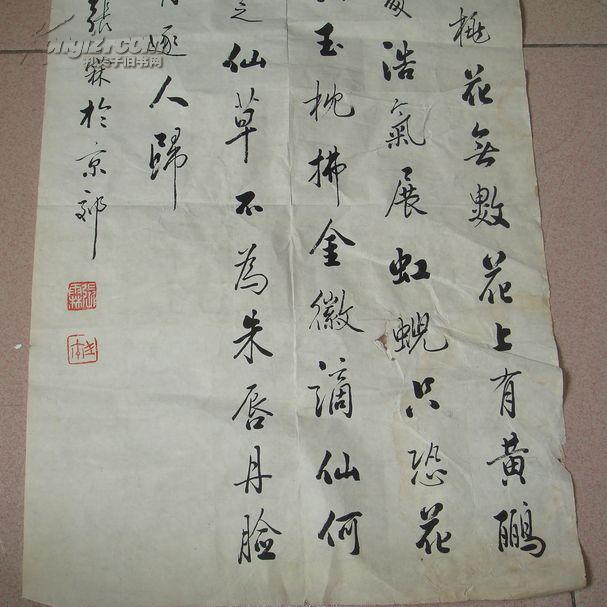 桃花無數花上有黃鸝
浩氣展虹蜺只恐花
玉枕拂金徽謫仙何
芝仙草不為朱唇丹臉
月逐人歸
張霖於京郊
張霖
kongfz.com
孔夫子旧书网